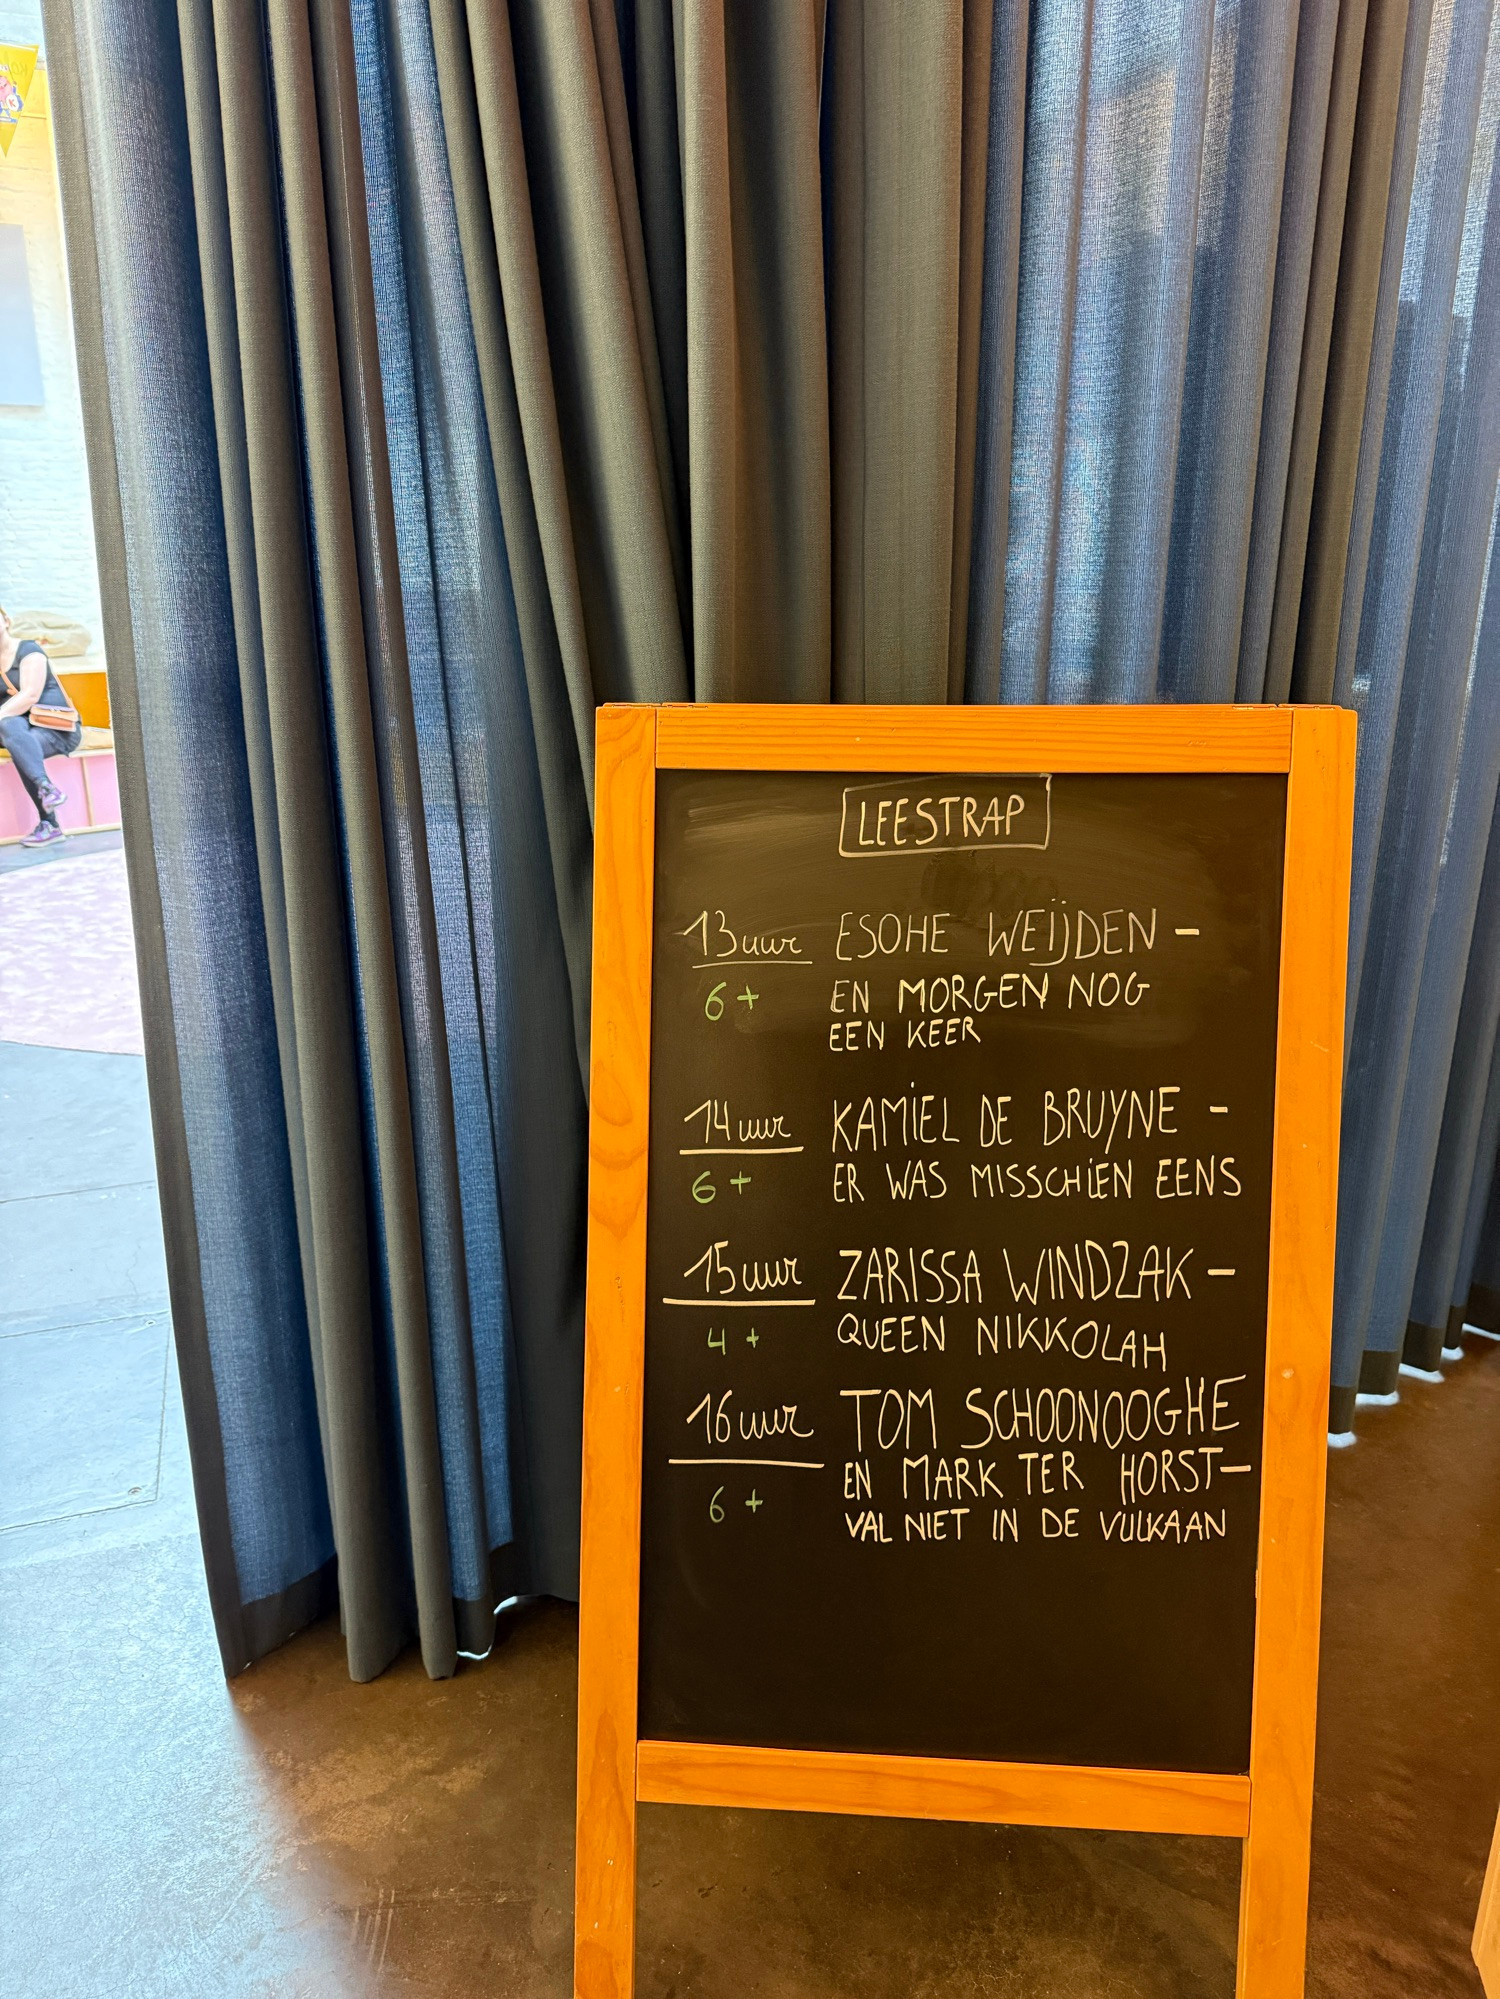 LEESTRAP
13 uur ESOHE WEIJDEN -
6+ EN MORGEN NOG
EEN KEER
14 uur KAMIEL DE BRUYNE -
6+ ER WAS MISSCHIEN EENS
15 uur ZARISSA WINDZAK -
4+ QUEEN NIKKOLAH
16 uur TOM SCHOONOOGHE
EN MARK TER HORST-
6+ VAL NIET IN DE VULKAAN